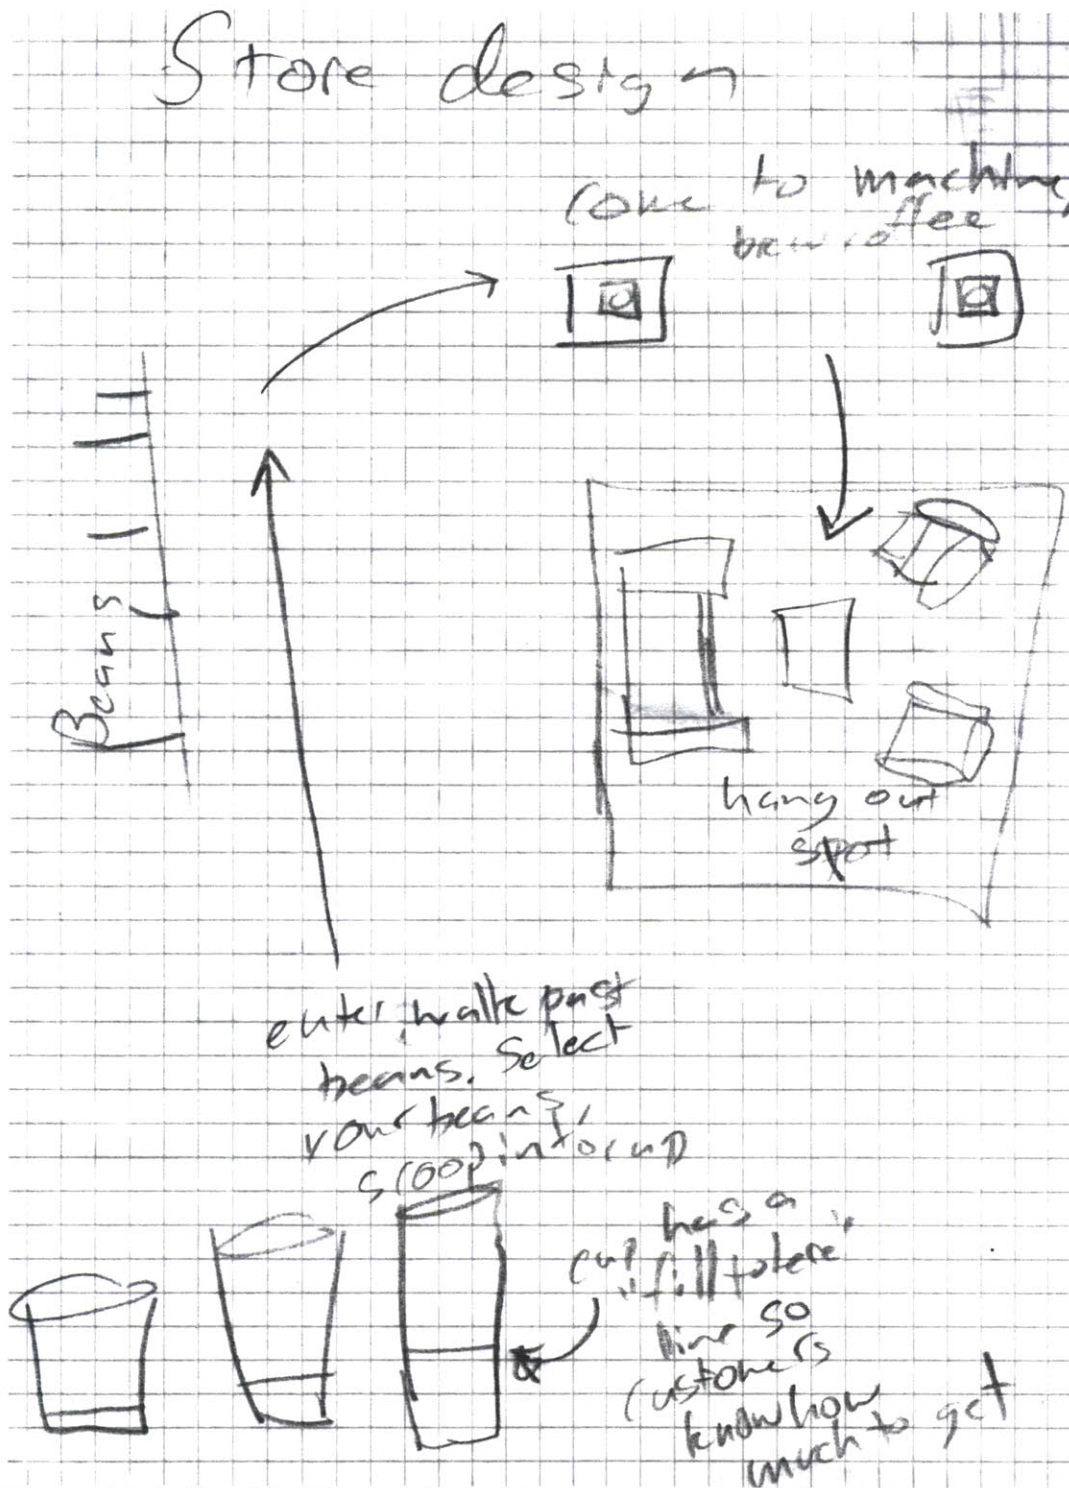 Store design
come to machine,
brew coffee
Beans
hang out
spot
enter, walk past
beans. Select
your beans,
scoop into cup
cup has a
"fill to here"
line so
customers
know how
much to get